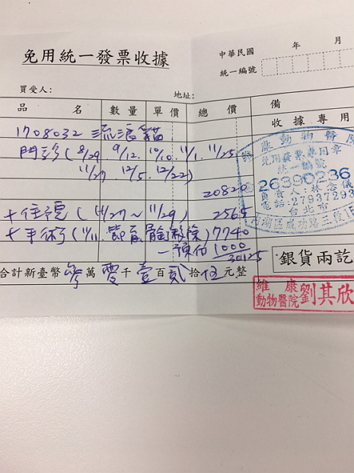 免用統一發票收據
中華民國 年 月
統一編號
買受人： 地址：
品名 數量 單價 總價 備
收據專用
1708032 流浪貓
門診(8/29 9/12. 10/10. 11/1. 11/25.
11/27 12/5. 12/22)
20820
+住院(11/27~11/29) 2565
+手術( 7740
-預估 1000
30125
合計新臺幣參萬零千壹百貳拾伍元整
銀貨兩訖
動物醫院
免用發票專用章
統一編號
26390236
負責人：林
TEL: 27937293
台北市
維康
動物醫院 劉其欣